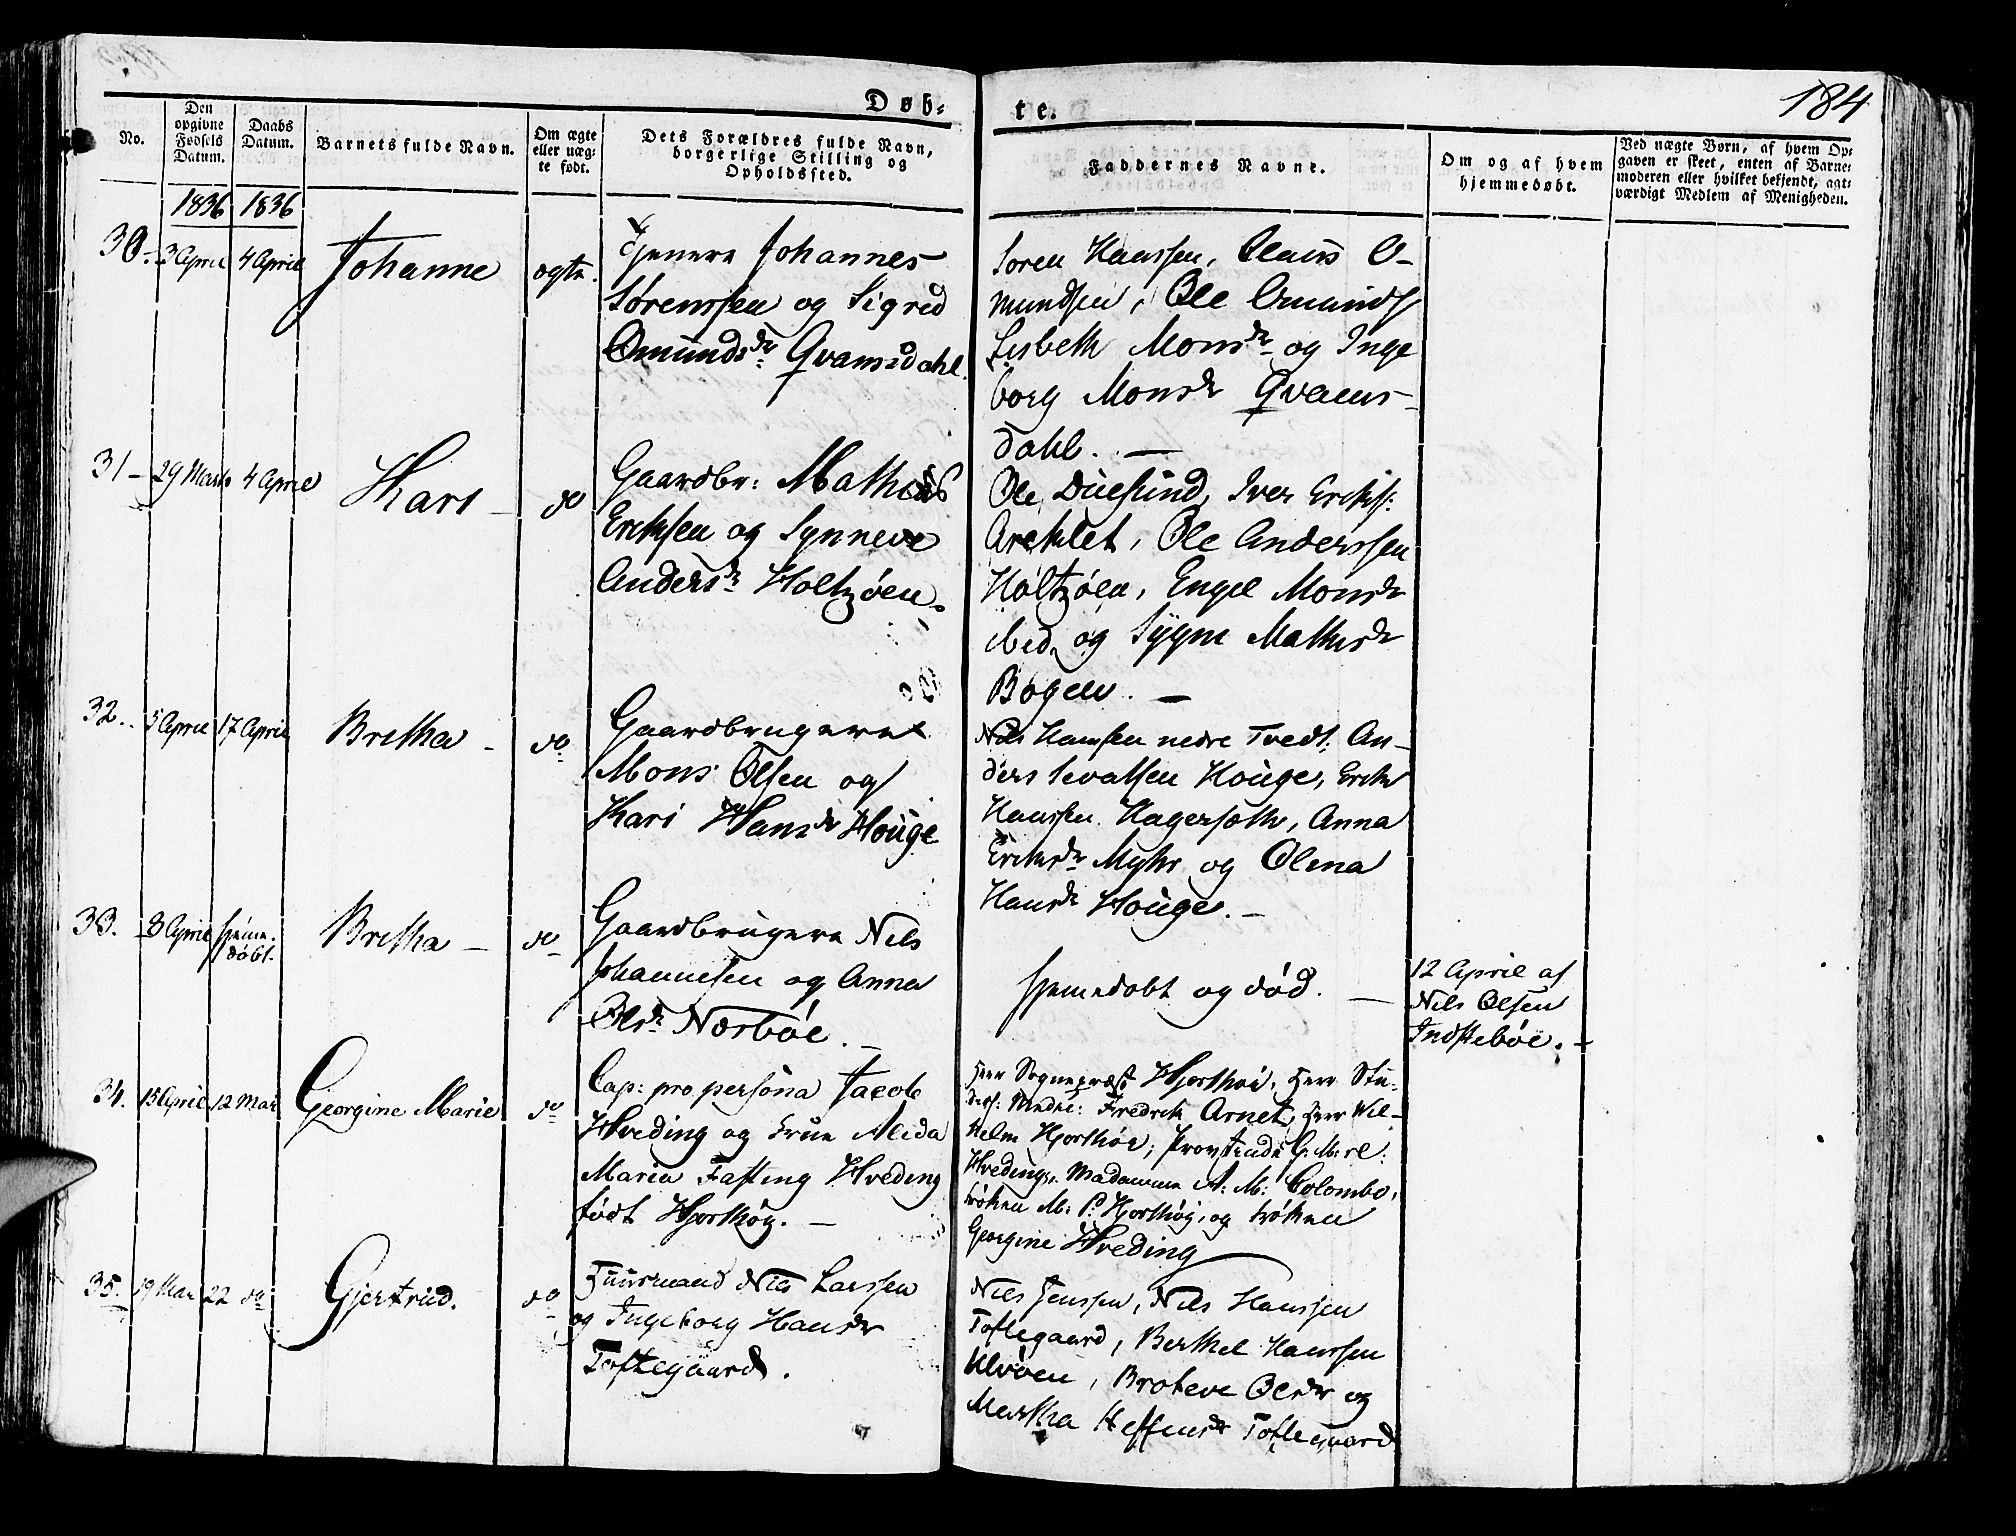 184
Døb-
te.
No.
Den
opgivne
Fødsels
Datum.
Daabs
Datum.
Barnets fulde Navn.
Om ægte
eller uæg-
te født.
Dets Forældres fulde Navn,
borgerlige Stilling og
Opholdssted.
Faddernes Navne.
Om og af hvem
hjemmedøbt.
Ved uægte Børn, af hvem Op-
gaven er skeet, enten af Barne-
moderen eller hvilket bekjendt, agt-
værdigt Medlem af Menigheden.
1836 1836
30- 3 April 4 April Johanne ægte.
Johannes
Sørenssen og Sigrid
Omundsdr Qvamsdahl.
Søren Hanssen, Claus O-
mundsen, Ole Omunds
Lisbeth Monsdr og Inge
borg Monsdr Qvams-
dahl. —
31- 29 Marts 4 April Kari - do
Gaardbr: Mathias
Eriksen og Synneve
Andersdr Holtzøen.
Ole Duesund, Iver Eriks:
Areklet, Ole Anderssen
Holtzøen, Engel Monsdr
ibid og Sygni Mathisdr
Bogen. —
32. 5 April 17 April Bretha - do
Gaardbrugere
Mons Olsen og
Kari Hansdr Houge
Nils Hansen nedre Tvedt: An-
ders Sevatsen Houge, Erik
Hanssen Hagersæth, Anna
Eriksdr Myhr og Olina
Hansdr Houge. —
33. 8 April hjeme-
døbt.
Bretha - do
Gaardbrugere Nils
Johannesen og Anna
Olsdr Norbøe. —
hjemedøbt og død. —
12 April af
Nils Olsen
Indstebøe. -
34. 15 April 12 Mai Georgine Marie do
Cap: pro persona Jacob
Hveding og Frue Alida
Maria Fasting Hveding
født Hjorthøy. —
Herr Sognepræst Hjorthøi, Herr Stu-
Fredrik Arnet, Herr Wil-
helm Hjorthøi,
Hveding, Madamme A: M: Colombo,
Frøken M: P: Hjorthøy, og Frøken
Georgine Hveding
35. 19 Mai 22 do Gjertrud. do
Huusmand Nils Larssen
og Ingeborg Hansdr
Toftegaard.
Nils Jenssen, Nils Hanssen
Toftegaard, Berthel Hanssen
Ulvøen, Broteve Olsdr og
Martha Toftegaard